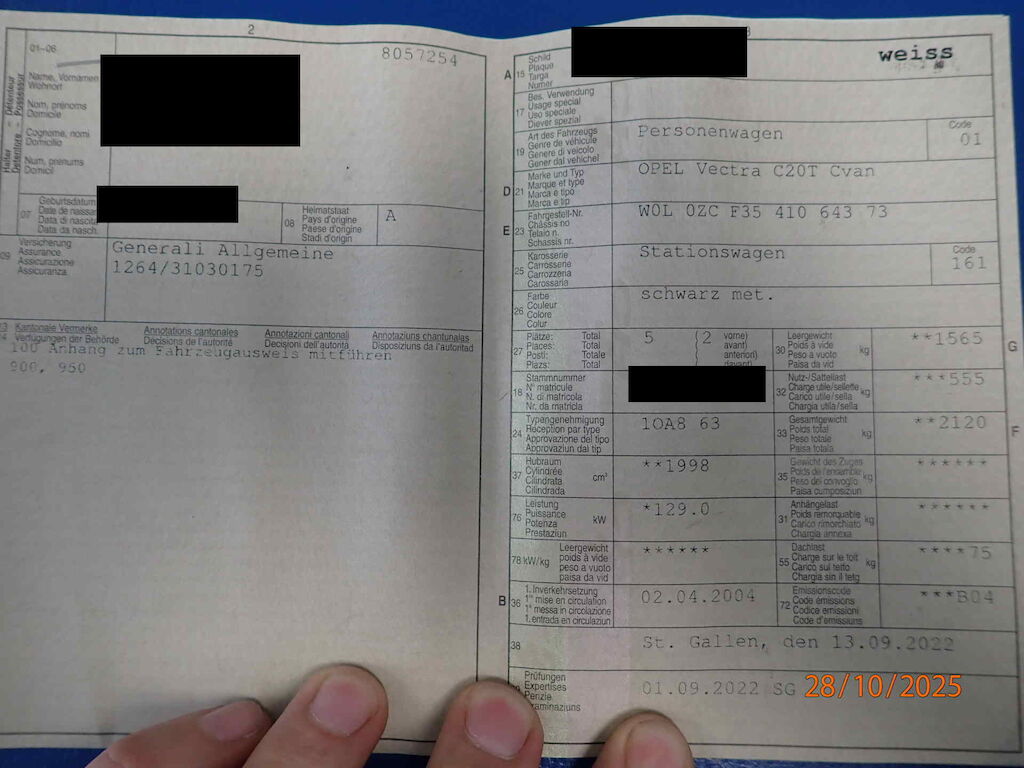 2
01-06
8057254
Détenteur
Possessur
Halter
Detentore
Name, Vornamen
Wohnort
Nom, prénoms
Domicile
Cognome, nomi
Domicilio
Num, prenums
Domicil
07
Geburtsdatum
Date de naissan
Data di nascita
Data da nasch.
08
Heimatstaat
Pays d'origine
Paese d'origine
Stadi d'origin
A
09
Versicherung
Assurance
Assicurazione
Assicuranza
Generali Allgemeine
1264/31030175
Kantonale Vermerke
Verfügungen der Behörde
Annotations cantonales
Décisions de l'autorité
Annotazioni cantonali
Decisioni dell'autorità
Annotaziuns chantunalas
Disposiziuns da l'autoritad
100 Anhang zum Fahrzeugausweis mitführen
900, 950
A
15
Schild
Plaque
Targa
Numer
weiss
17
Bes. Verwendung
Usage spécial
Uso speciale
Diever spezial
19
Art des Fahrzeugs
Genre de véhicule
Genere di veicolo
Gener dal vehichel
Personenwagen
Code
01
D
21
Marke und Typ
Marque et type
Marca e tipo
Marca e tip
OPEL Vectra C20T Cvan
E
23
Fahrgestell-Nr.
Châssis no
Telaio n.
Schassis nr.
W0L 0ZC F35 410 643 73
25
Karosserie
Carrosserie
Carrozzeria
Carossaria
Stationswagen
Code
161
26
Farbe
Couleur
Colore
Colur
schwarz met.
27
Plätze: Total
Places: Total
Posti: Totale
Plazs: Total
5 (2 vorne)
avant)
anteriori)
davant)
30
Leergewicht
Poids à vide
Peso a vuoto
Paisa da vid
kg
**1565
G
18
Stammnummer
N° matricule
N. di matricola
Nr. da matricla
32
Nutz-/Sattellast
Charge utile/sellette
Carico utile/sella
Chargia utila/sella
kg
***555
24
Typengenehmigung
Réception par type
Approvazione del tipo
Approvaziun dal tip
1OA8 63
33
Gesamtgewicht
Poids total
Peso totale
Paisa totala
kg
**2120
F
37
Hubraum
Cylindrée
Cilindrata
Cilindrada
cm³
**1998
35
Gewicht des Zuges
Poids de l'ensemble
Peso del convoglio
Paisa cumposiziun
kg
******
76
Leistung
Puissance
Potenza
Prestaziun
kW
*129.0
31
Anhängelast
Poids remorquable
Carico rimorchiato
Chargia annexa
kg
******
78 kW/kg
Leergewicht
poids à vide
peso a vuoto
paisa da vid
******
55
Dachlast
Charge sur le toit
Carico sul tetto
Chargia sin il tetg
kg
****75
B
36
1. Inverkehrsetzung
1re mise en circulation
1a messa in circolazione
1. entrada en circulaziun
02.04.2004
72
Emissionscode
Code émissions
Codice emissioni
Code d'emissiuns
***B04
38
St. Gallen, den 13.09.2022
Prüfungen
Expertises
Perizie
Examinaziuns
01.09.2022 SG
28/10/2025